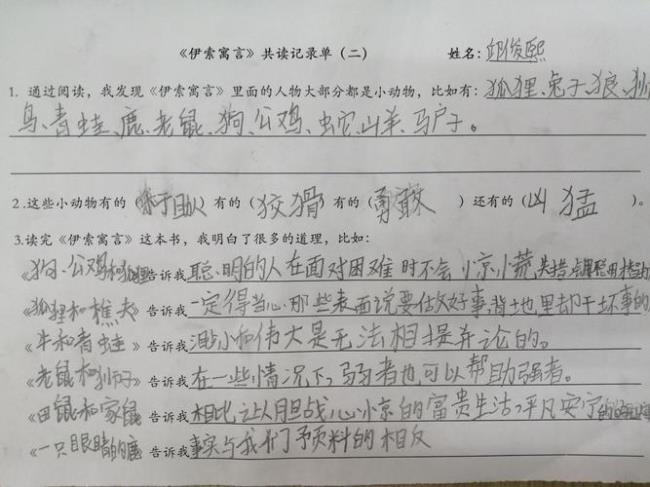 《伊索寓言》共读记录单（二） 姓名：邱俊熙
1. 通过阅读，我发现《伊索寓言》里面的人物大部分都是小动物，比如有：狐狸、兔子、狼、狮
鸟、青蛙、鹿、老鼠、狗、公鸡、蛇、山羊、马户子。
2.这些小动物有的（乐于助人）有的（狡猾）有的（勇敢）还有的（凶猛）。
3.读完《伊索寓言》这本书，我明白了很多的道理，比如：
《狗、公鸡和狐狸》告诉我聪明的人在面对困难时不会惊慌失措
《狐狸和樵夫》告诉我一定得当心那些表面说要做好事，背地里去干坏事的
《牛和青蛙》告诉我渺小和伟大是无法相提并论的。
《老鼠和狮子》告诉我在一些情况下，弱者也可以帮助强者。
《田鼠和家鼠》告诉我相比让人胆战心惊的富贵生活，平凡安宁的
《一只眼睛的鹿》告诉我事实与我们预料的相反